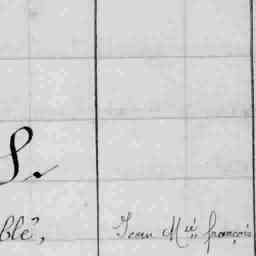 S.
blé, Jean M.ie françois